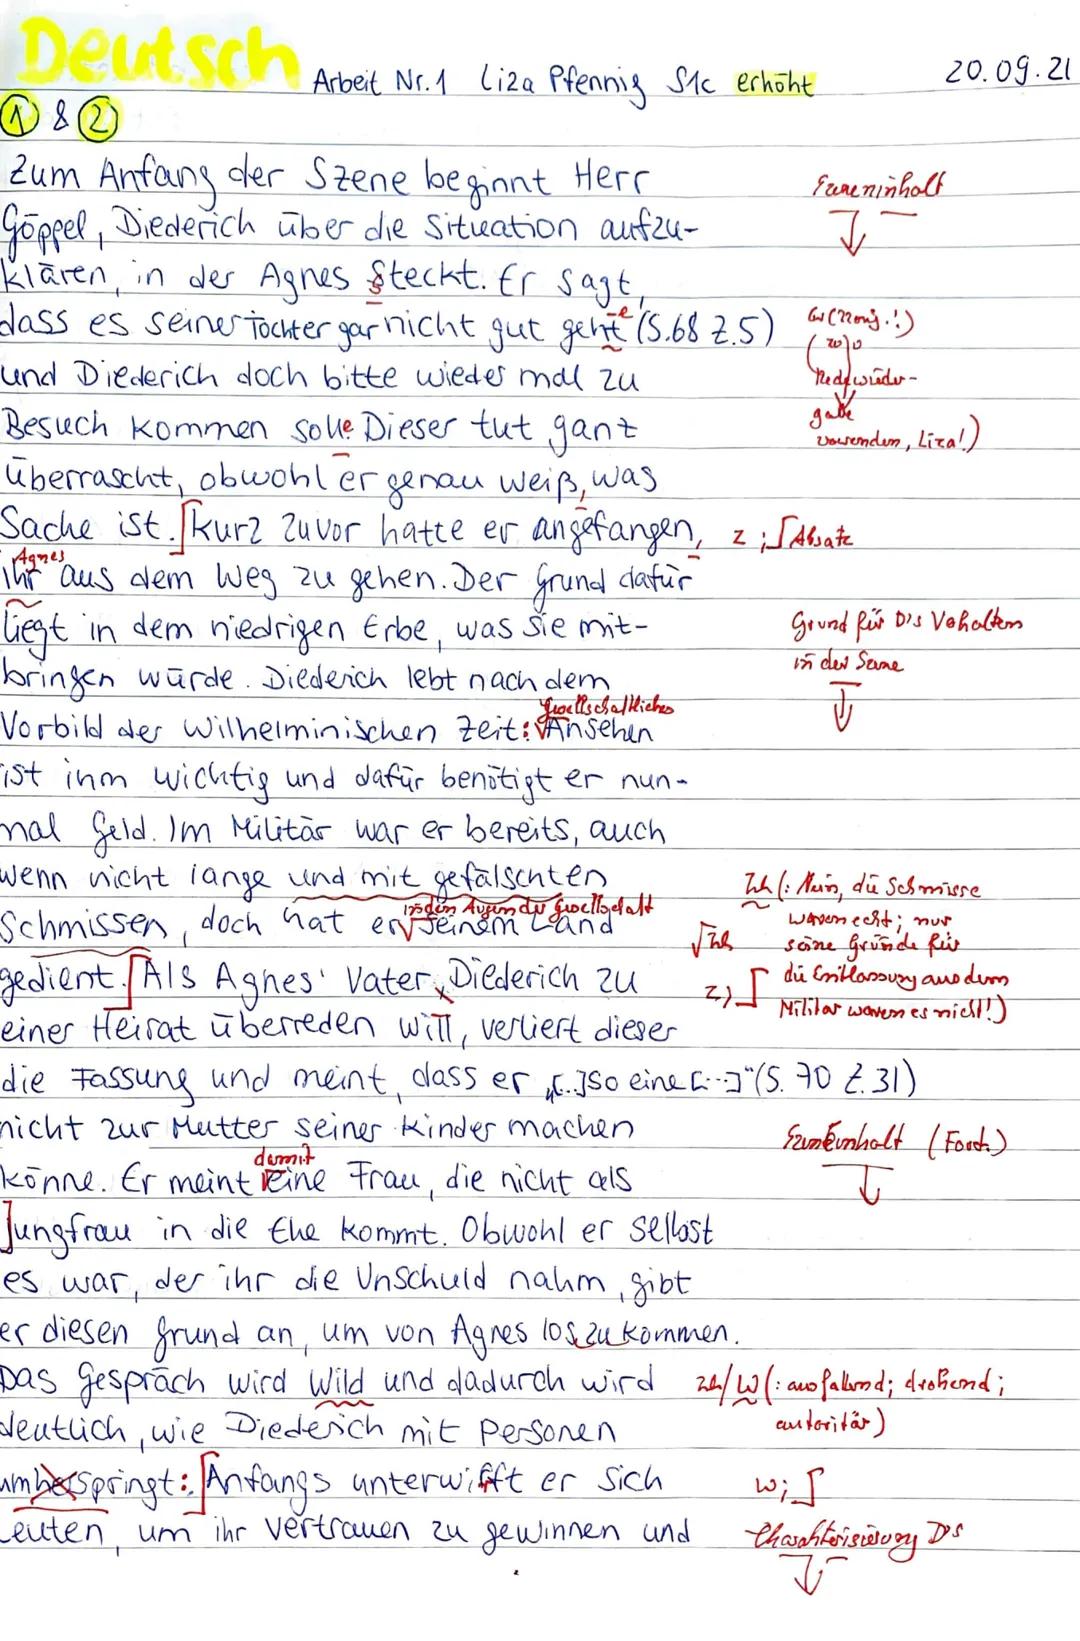 Deutsch
Arbeit Nr. 1 Liza Pfennig S1c erhöht 20.09.21
① & ②
Zum Anfang der Szene beginnt Herr
Göppel, Diederich über die Situation aufzu-
klären, in der Agnes steckt. Er sagt,
dass es seiner Tochter gar nicht gut geht (S.68 Z.5)
und Diederich doch bitte wieder mal zu
Besuch kommen solle. Dieser tut ganz
überrascht, obwohl er genau weiß, was
Sache ist. kurz zuvor hatte er angefangen, Z; Absatz
Agnes
ihr aus dem Weg zu gehen. Der Grund dafür
liegt in dem niedrigen Erbe, was sie mit-
Grund für D's Verhalten
in der Szene
bringen würde. Diederich lebt nach dem
gesellschaftliches
Vorbild der Wilhelminischen Zeit: Ansehen
ist ihm wichtig und dafür benötigt er nun-
mal Geld. Im Militär war er bereits, auch
wenn nicht lange und mit gefälschten
in den Augen der Gesellschaft
Schmissen, doch hat er seinem Land
Zh (: Nein, die Schmisse
waren echt; nur
seine Gründe für
die Entlassung aus dem
Militär waren es nicht!)
gedient. Als Agnes' Vater Diederich zu
einer Heirat überreden will, verliert dieser
die Fassung und meint, dass er „[..]So eine[...]"(S. 70 Z.31)
nicht zur Mutter seiner Kinder machen
damit
könne. Er meint eine Frau, die nicht als
Jungfrau in die Ehe kommt. Obwohl er selbst
es war, der ihr die Unschuld nahm, gibt
er diesen Grund an, um von Agnes los zu kommen.
Das Gespräch wird Wild und dadurch wird
Zh/W (: ausfallend; drohend;
autoritär)
deutlich, wie Diederich mit Personen
umherspringt: Anfangs unterwirft er sich W;
Leuten, um ihr Vertrauen zu gewinnen und
Charakterisierung D's